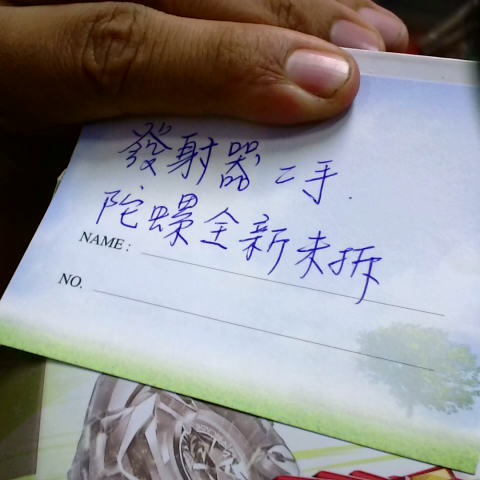 發射器二手.
陀螺全新未拆
NAME:
NO.